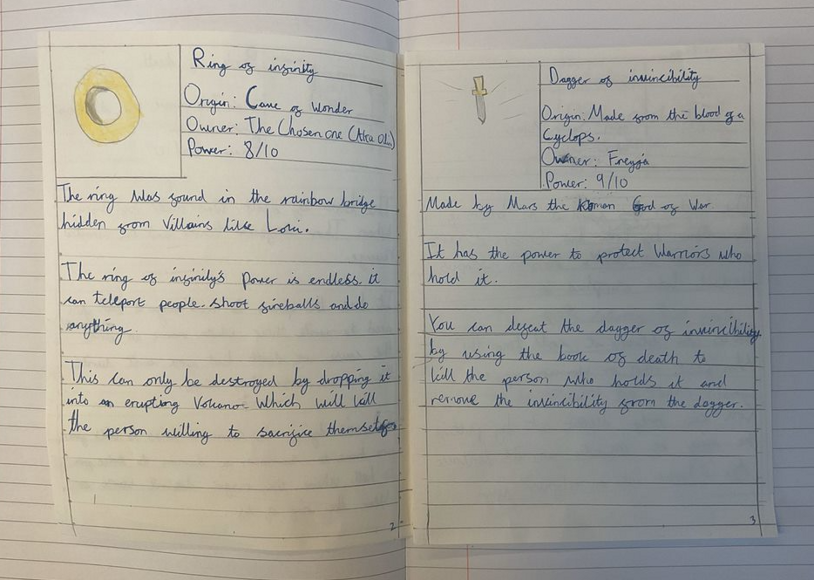 Ring of infinity
Origin: Cave of Wonder
Owner: The Chosen one (Aka
Power: 8/10
The ring was found in the rainbow bridge
hidden from Villains like Loki.
The ring of infinity's power is endless. it
can teleport people. shoot fireballs and do
anything.
This can only be destroyed by dropping it
into an erupting Volcano. Which will kill
the person willing to sacrifice themself
2
Dagger of invincibility
Origin: Made from the blood of a
Cyclops.
Owner: Freyja
Power: 9/10
Made by Mars the Roman God of War
It has the power to protect Warriors who
hold it.
You can defeat the dagger of invincibility
by using the book of death to
kill the person who holds it and
remove the invincibility from the dagger.
3